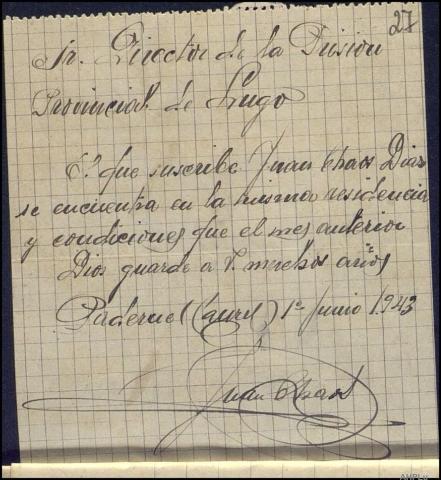 27
Sr. Director de la Prision
Provincial de Lugo
El que suscribe Juan Chaos Dias
se encuentra en la misma residencia
y condiciones que el mes anterior
Dios guarde a V. muchos años
Paderne 1º Junio 1.943
Juan Chaos